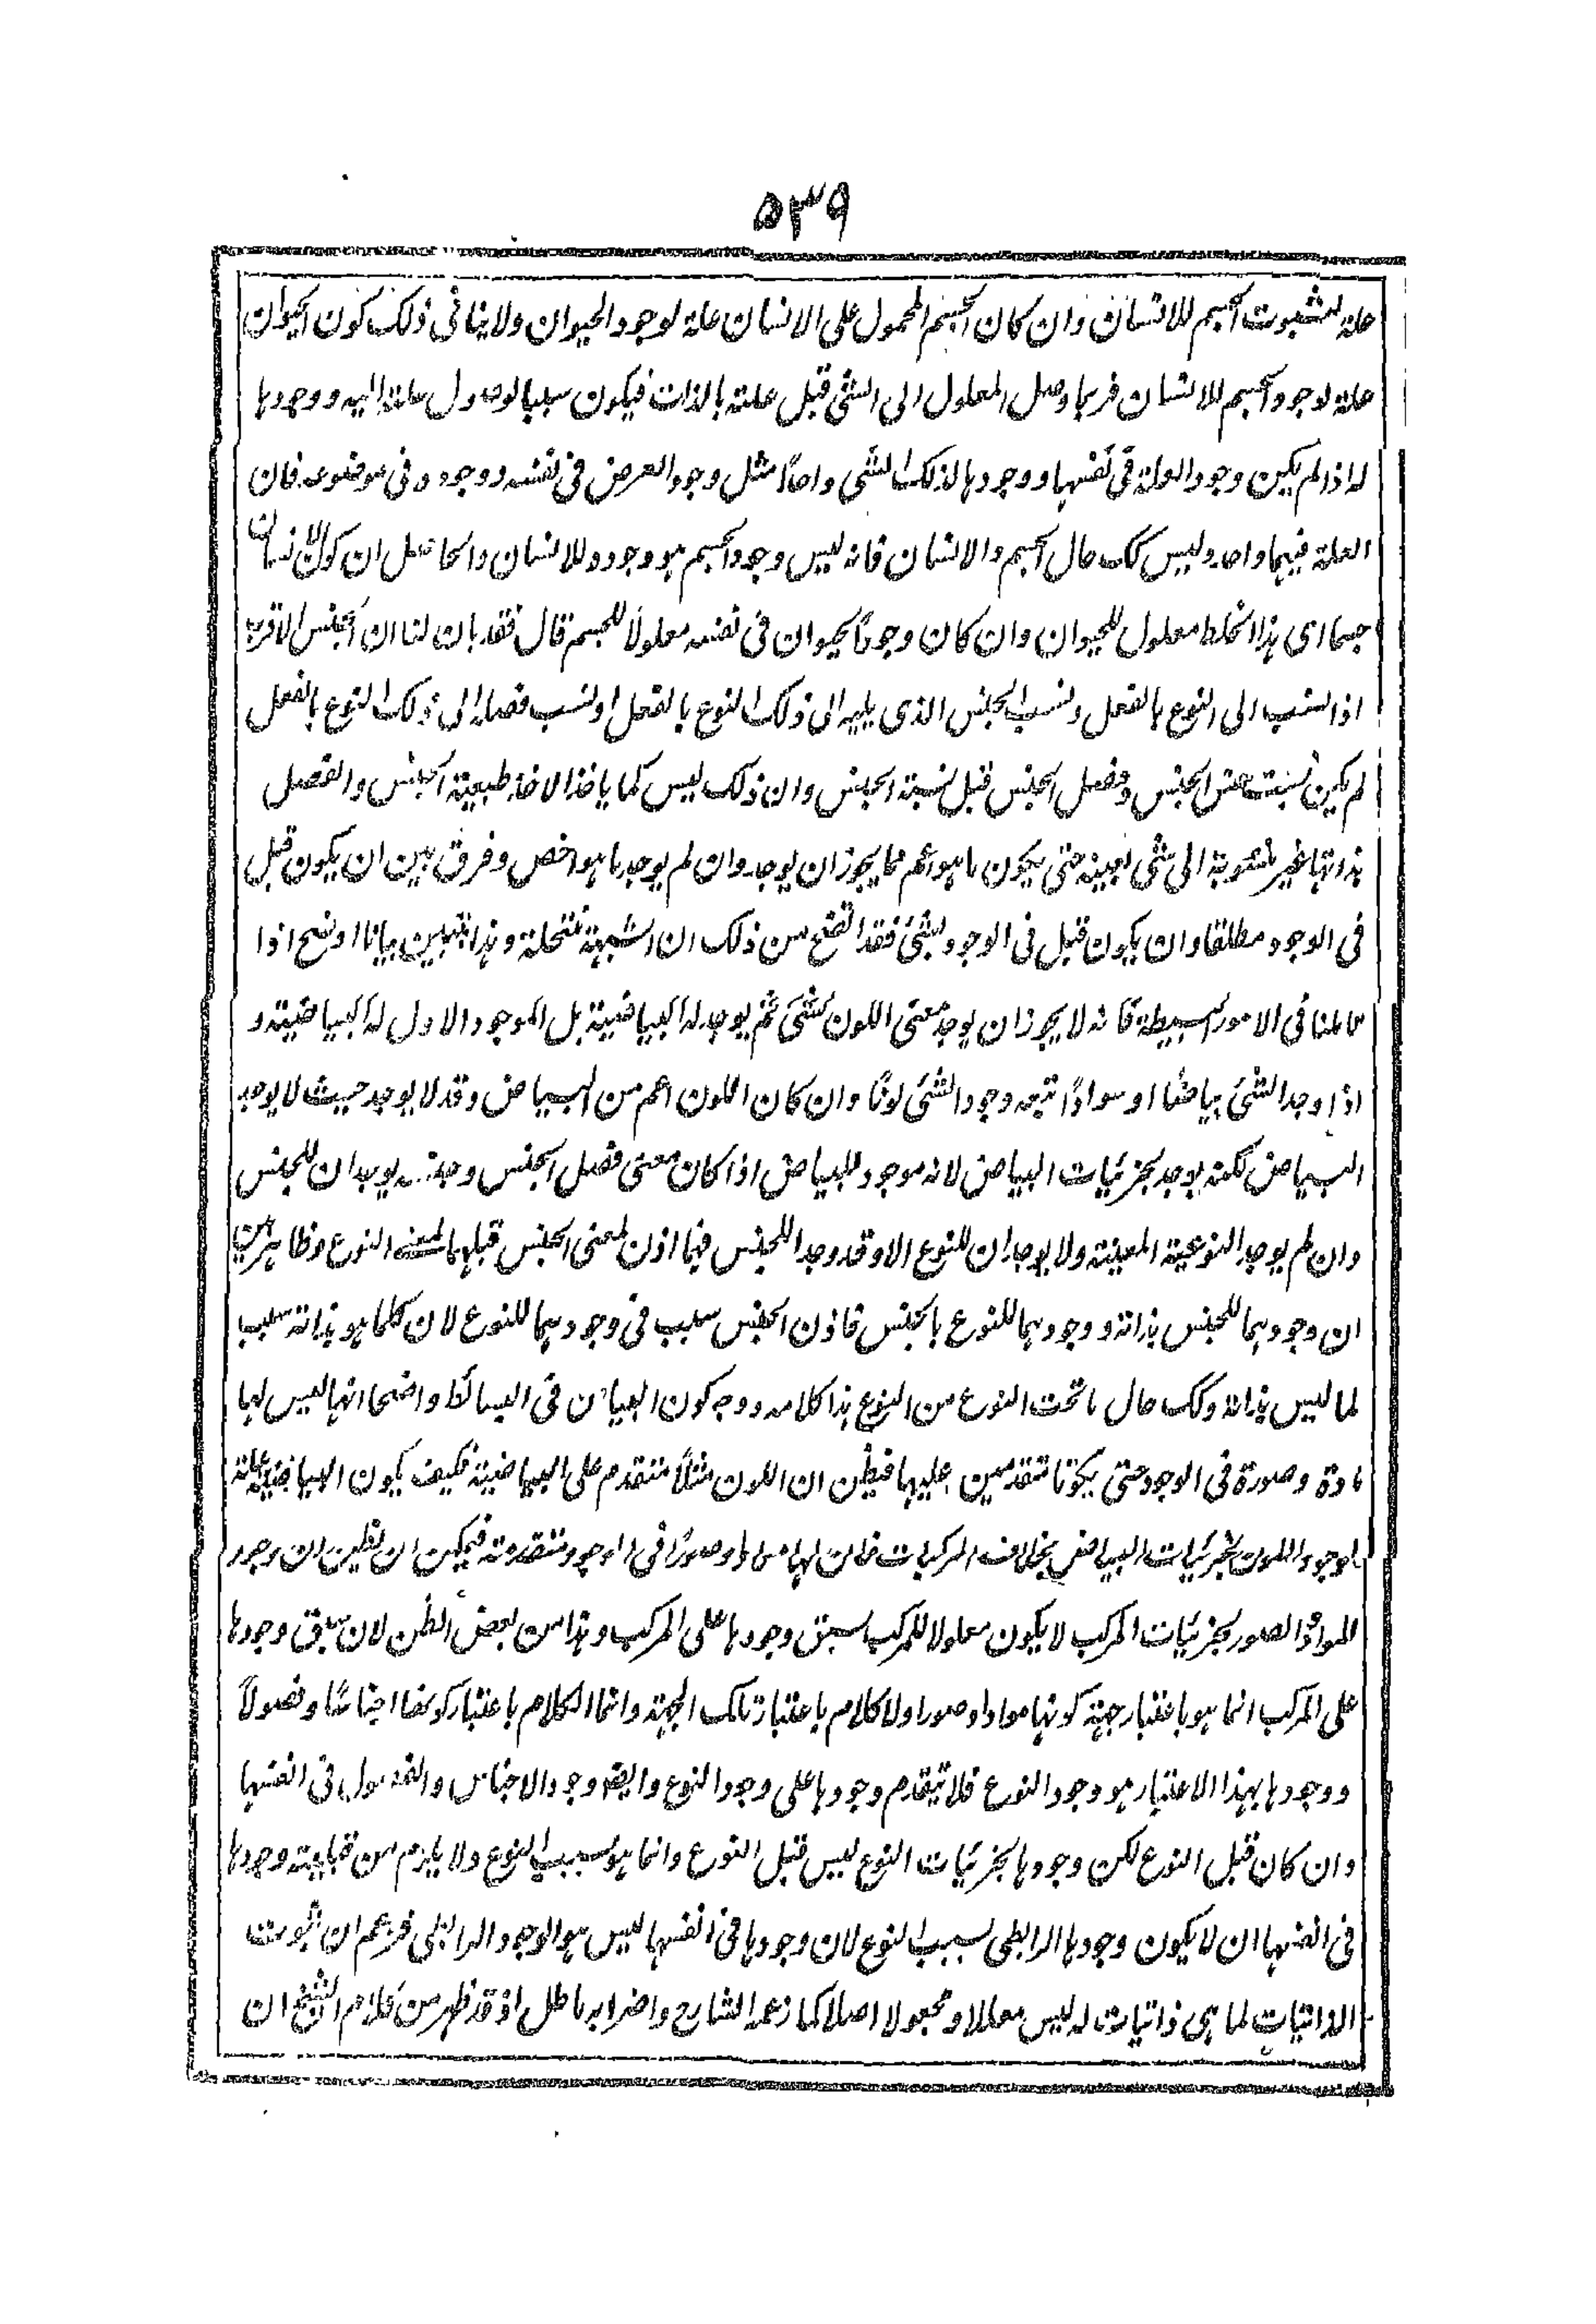 ٥٣٩
علة لثبوت الجسم للانسان وان كان الجسم المحمول على الانسان علة لوجود الحيوان ولا ينافى ذلك كون الحيوان
علة لوجود الجسم للانسان فربما وصل المعلول الى الشئ قبل علته بالذات فيكون سببا لوصول علته اليه ووجودها
له اذا لم يكن وجود العلة فى نفسها ووجودها لذلك الشئ واحدًا مثل وجود العرض فى نفسه ووجوده فى موضوعه فان
العلة فيهما واحد وليس كك حال الجسم والانسان فانه ليس وجود الجسم هو وجوده للانسان والحاصل ان كون الانسان
جسما اى هذا الخلط معلول للحيوان وان كان وجود الحيوان فى نفسه معلولا للجسم قال فقد بان لنا ان الجنس الاقرب
اذا نسب الى النوع بالفعل ونسب الجنس الذى يليه الى ذلك النوع بالفعل او نسب فصله الى ذلك النوع بالفعل
لم يكن نسبت جنس الجنس وفصل الجنس قبل نسبة الجنس وان ذلك ليس كما ياخذ الاخذ طبيعة الجنس والفصل
بذاتها غير منسوبة الى شئ بعينه حتى يكون ما هو اعم مما يجوز ان يوجد وان لم يوجد ما هو اخص وفرق بين ان يكون قبل
فى الوجود مطلقا وان يكون قبل فى الوجود لشئ فقد اتضح من ذلك ان الشبهة منحلة وهذا يتبين بيانا اوضح اذا
تاملنا فى الامور البسيطة فانه لا يجوز ان يوجد معنى اللون لشئ ثم يوجد له البياضية بل الموجود الاول له البياضية و
اذا وجد الشئ بياضا او سوادًا تبعه وجود الشئ لونًا وان كان اللون اعم من البياض وقد لا يوجد حيث لا يوجد
البياض لكنه يوجد لجزئيات البياض لانه موجود للبياض اذا كان معنى فصل الجنس وجنسه يوجدان للجنس
وان لم يوجد النوعية المعينة ولا يوجدان للنوع الا وقد وجدا للجنس فما اذن لمعنى الجنس قبلهما لمعنى النوع وظاهر من
ان وجودهما للجنس بذاته ووجودهما للنوع بالجنس فاذن الجنس سبب فى وجودهما للنوع لان كلما هو بذاته سبب
لما ليس بذاته وكك حال ما تحت النوع من النوع هذا كلامه ووجه كون البيان فى البسائط واضحا انها ليس لها
مادة وصورة فى الوجود حتى يكونا متقدمين عليها فيظن ان اللون مثلًا متقدم على البياضية فكيف يكون البياضية علة
لوجود اللون لجزئيات البياض بخلاف المركبات فان لها موادا وصورًا فى الوجود متقدمة فيمكن ان يظن ان وجود
المواد والصور لجزئيات المركب لا يكون معلولا للمركب لسبق وجودها على المركب وهذا من بعض الظن لان سبق وجودها
على المركب انما هو باعتبار جهة كونها موادا وصورا ولا كلام باعتبار تلك الجهة وانما الكلام باعتبار كونها اجناسًا وفصولًا
ووجودها بهذا الاعتبار هو وجود النوع فلا يتقدم وجودها على وجود النوع وايضه وجود الاجناس والفصول فى انفسها
وان كان قبل النوع لكن وجودها لجزئيات النوع ليس قبل النوع وانما هو بسبب النوع ولا يلزم من قبلية وجودها
فى انفسها ان لا يكون وجودها الرابطى بسبب النوع لان وجودها فى انفسها ليس هو الوجود الرابطى فزعم ان ثبوت
الذاتيات لما هى ذاتيات له ليس معللا ومجعولا اصلا كما زعمه الشارح واضرابه باطل اذ قد ظهر من كلام الشيخ ان